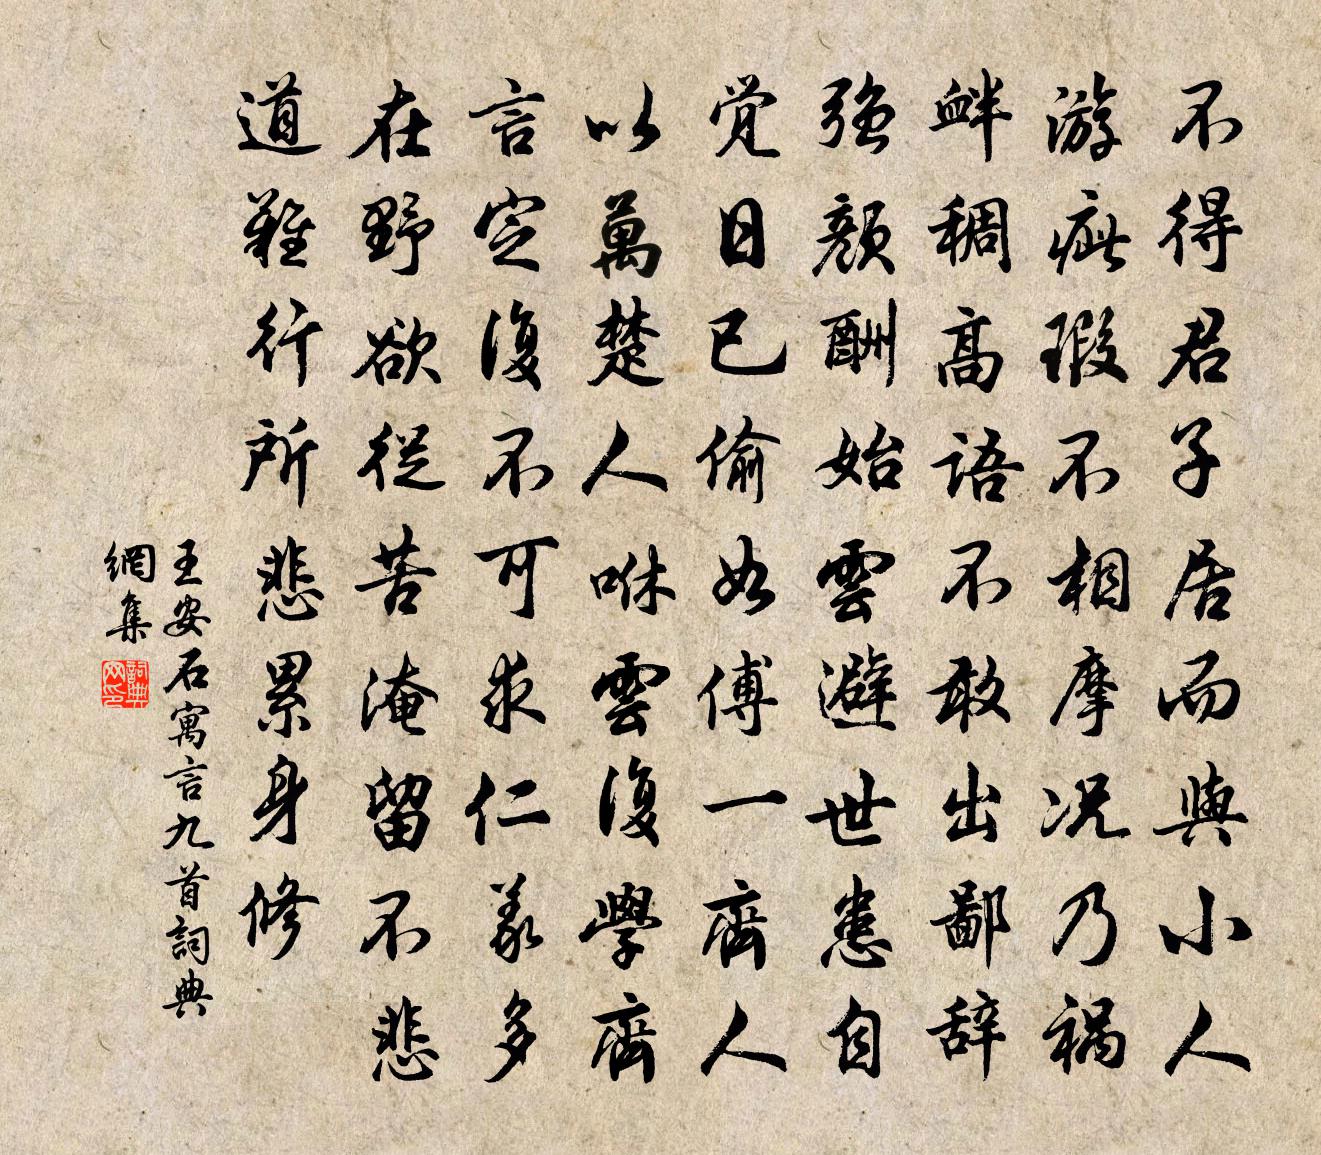 不得君子居而與小人
游疵瑕不相摩況乃禍
衅稠高語不敢出鄙辞
強顔酬始雲避世患自
覚日已偷如傅一齊人
以萬楚人咻雲復學齊
言定復不可求仁義多
在野欲從苦淹留不悲
道難行所悲累身修
王安石寓言九首詞典
網集
詞典網印